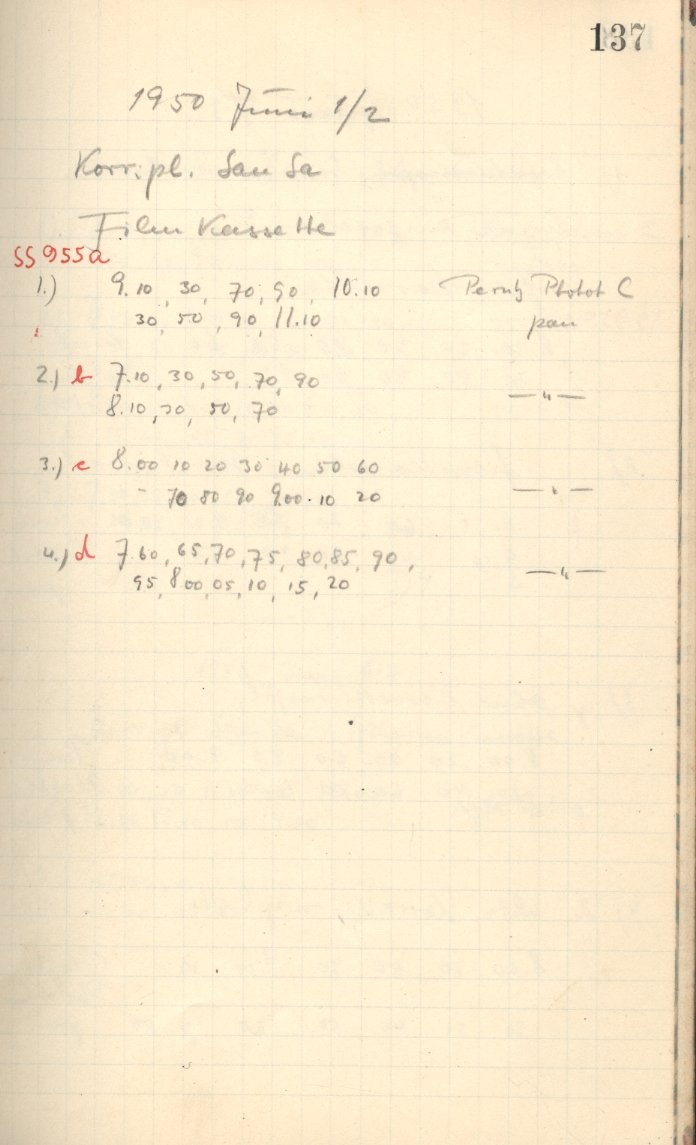 137
1950 Juni 1/2
Korr. pl. San Sa
Film Kassette
SS 955a
1.) 9.10, 30, 70, 90, 10.10 Perutz C
30, 50, 90, 11.10 pan
2.) b 7.10, 30, 50, 70, 90
8.10, 30, 50, 70 —"—
3.) c 8.00 10 20 30 40 50 60
70 80 90 9.00. 10 20 —"—
4.) d 7.60, 65, 70, 75, 80, 85, 90,
95, 8.00, 05, 10, 15, 20 —"—